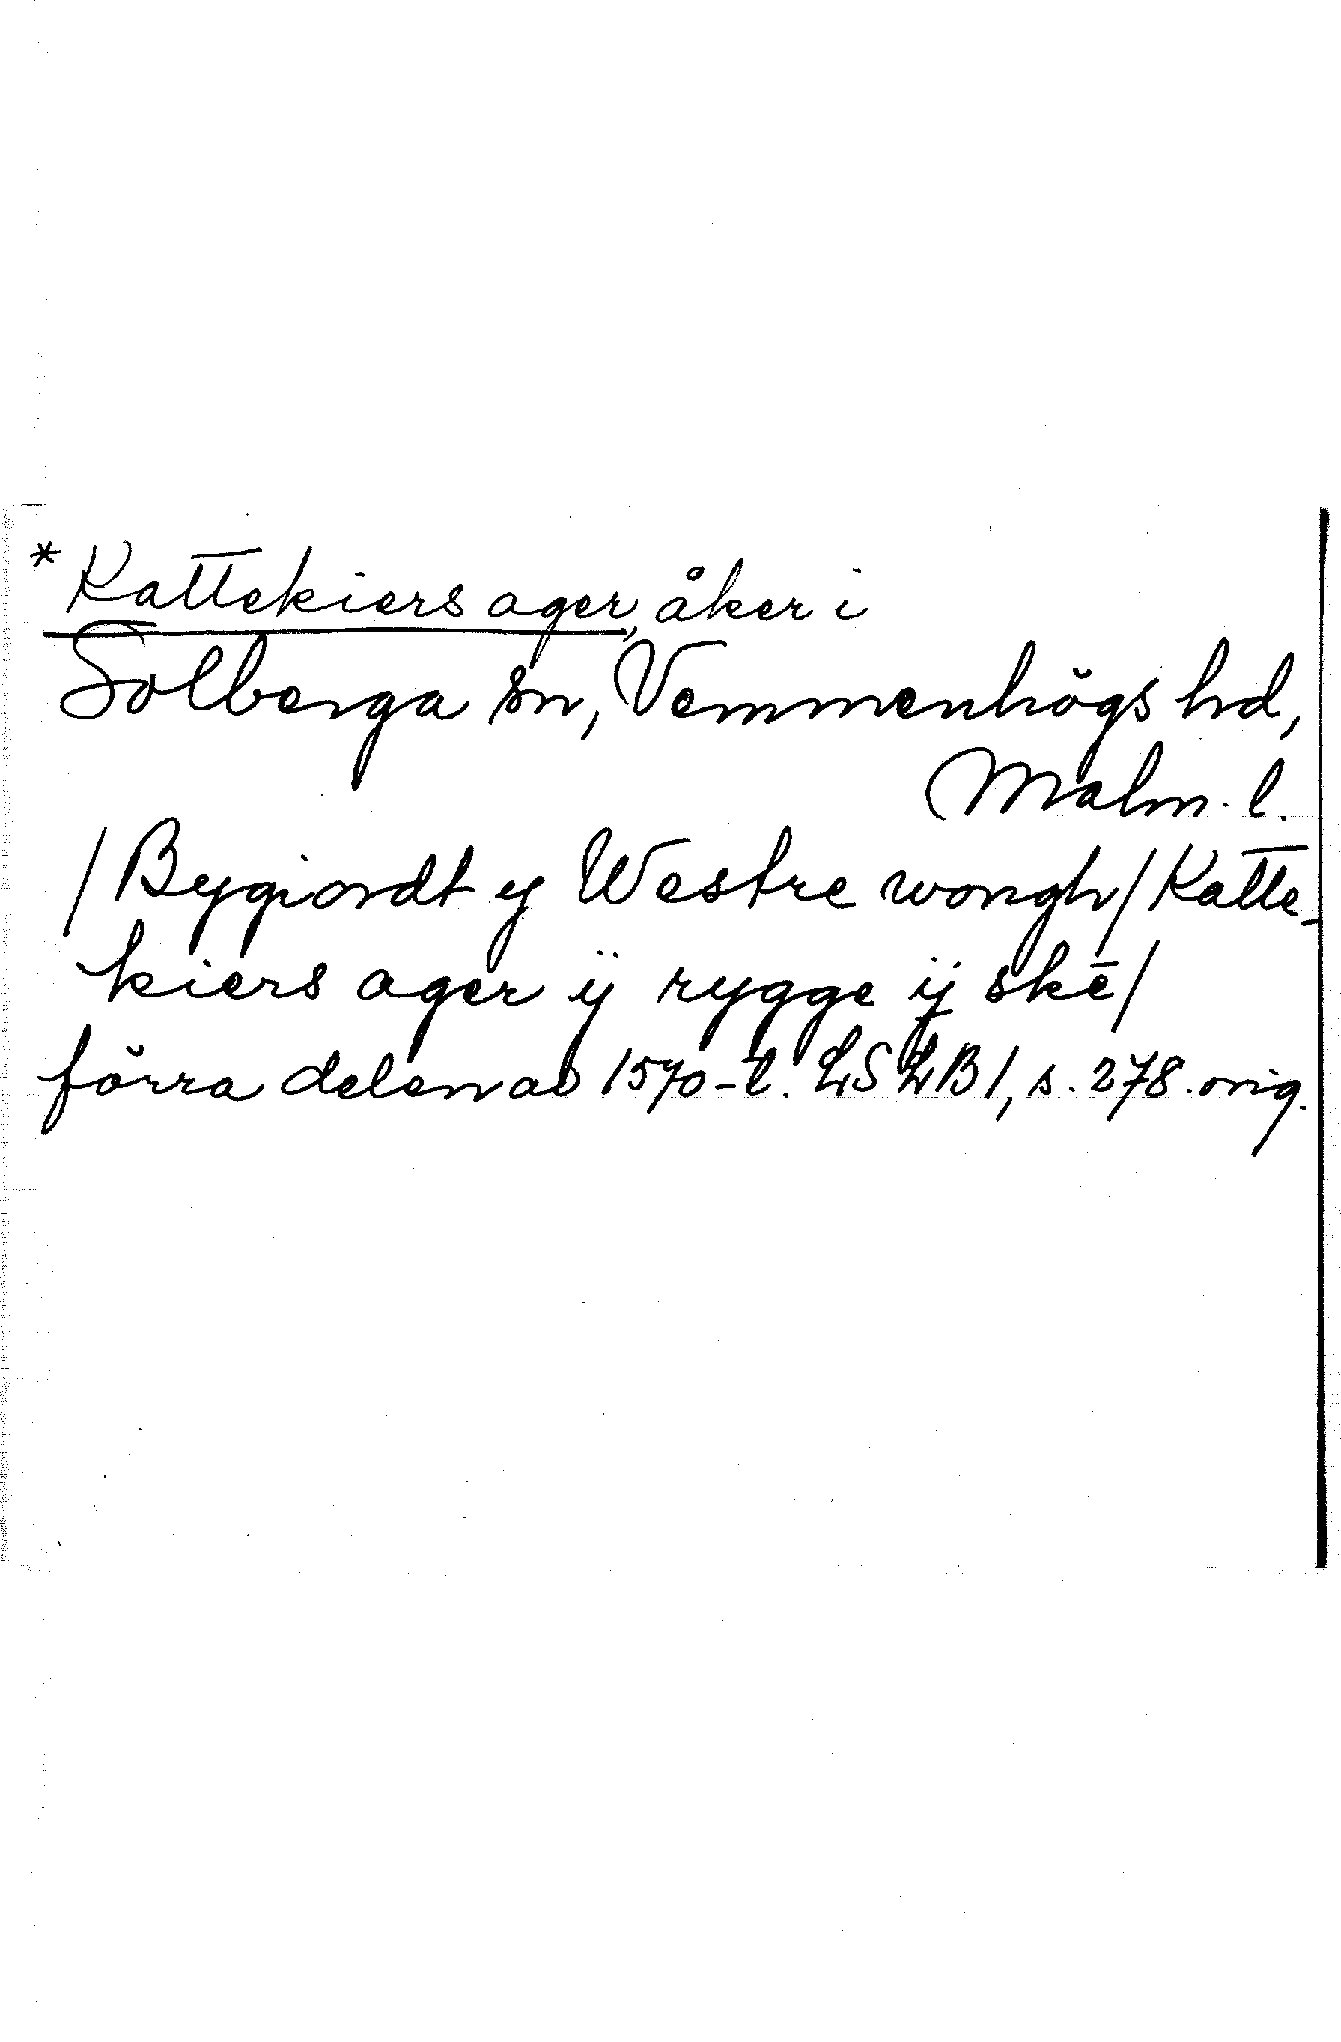 *Kattekiers ager, åker i
Solberga sn, Vemmenhögs hd,
Malm. l.
/Bygiordt y Westre wongh/Katte-
kiers ager ij rygge ij skē/
förra delen av 1570-t. LSLB1, s. 278. orig.